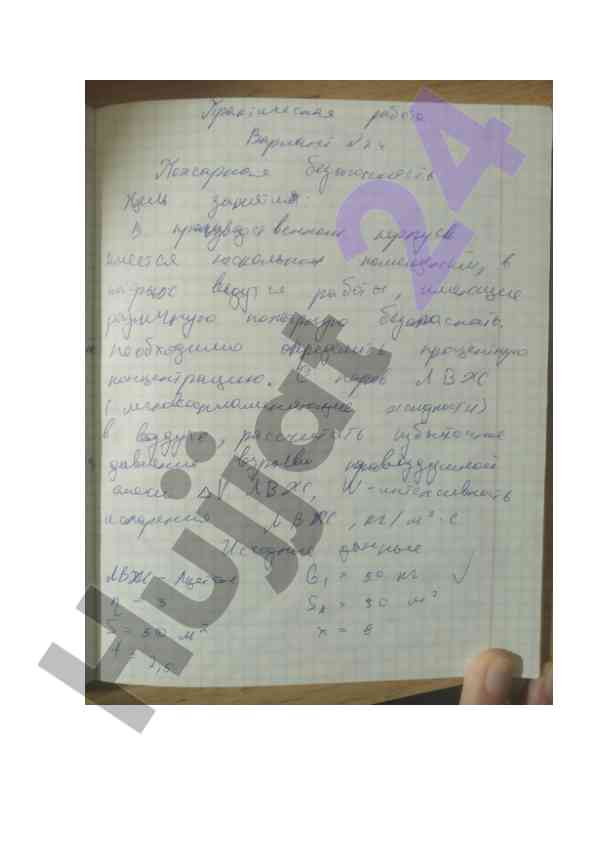 Практическая работа
Вариант №24
Пожарная безопасность
Цель занятия:
В производственном корпусе
имеется несколько помещений, в
которых ведутся работы, имеющие
различную пожарную безопасность.
Необходимо определить процентную
концентрацию. С паров ЛВЖС
(легковоспламеняющие жидкости)
в воздухе, рассчитать избыточное
давление взрыва паровоздушной
смеси ΔP ЛВЖС, W - интенсивность
испарения ЛВЖС, кг/м²·с
Исходные данные
ЛВЖС - Ацетон G₁ = 50 кг
η - 3 Sл = 30 м²
S = 500 м² n = 6